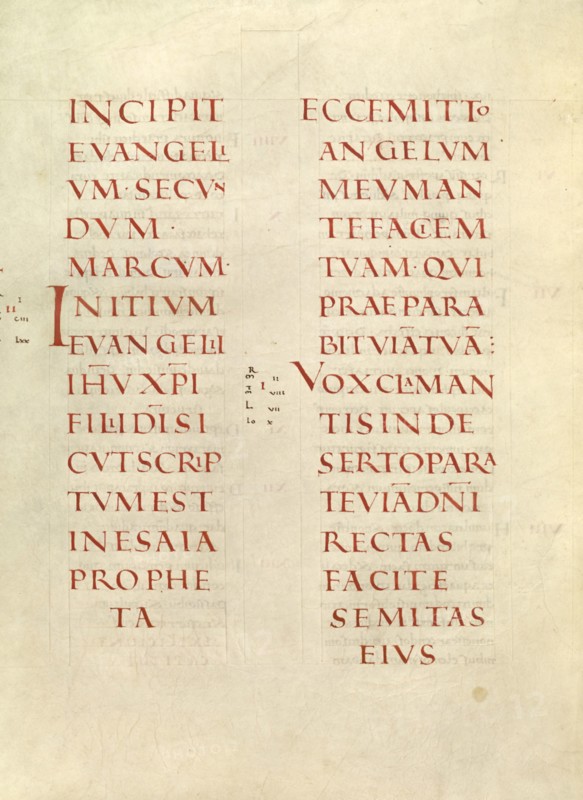 INCIPIT
EVANGELI
VM · SECVN
DVM ·
MARCVM ·
INITIVM
EVANGELII
IHV̅ XP̅I
FILII DI̅ SI
CVT SCRIP
TVM EST
IN ESAIA
PROPHE
TA
ECCE MITTO
ANGELVM
MEVM AN
TE FACIEM
TVAM · QVI
PRAEPARA
BIT VIA̅ TVA̅ :
VOX CLAMAN
TIS IN DE
SERTO PARA
TE VIA̅ DN̅I
RECTAS
FACITE
SEMITAS
EIVS